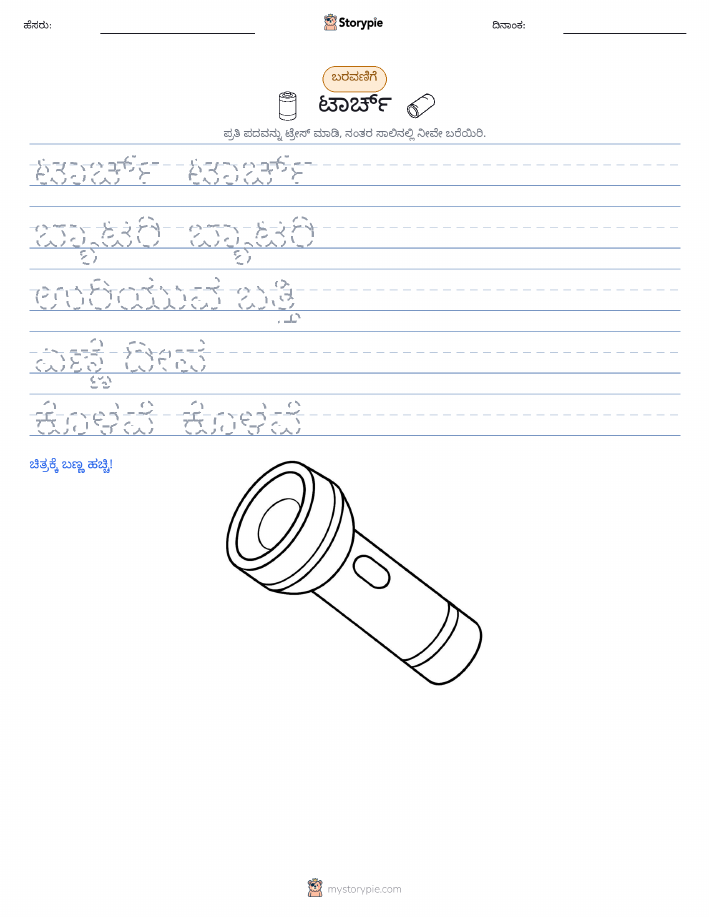 ಹೆಸರು:
Storypie
ದಿನಾಂಕ:
ಬರವಣಿಗೆ
ಟಾರ್ಚ್
ಪ್ರತಿ ಪದವನ್ನು ಟ್ರೇಸ್ ಮಾಡಿ, ನಂತರ ಸಾಲಿನಲ್ಲಿ ನೀವೇ ಬರೆಯಿರಿ.
ಟಾರ್ಚ್ ಟಾರ್ಚ್
ಬ್ಯಾಟರಿ ಬ್ಯಾಟರಿ
ಉರಿಯುವ ಬತ್ತಿ
ಎಣ್ಣೆ ದೀಪ
ಕೊಳವೆ ಕೊಳವೆ
ಚಿತ್ರಕ್ಕೆ ಬಣ್ಣ ಹಚ್ಚಿ!
mystorypie.com